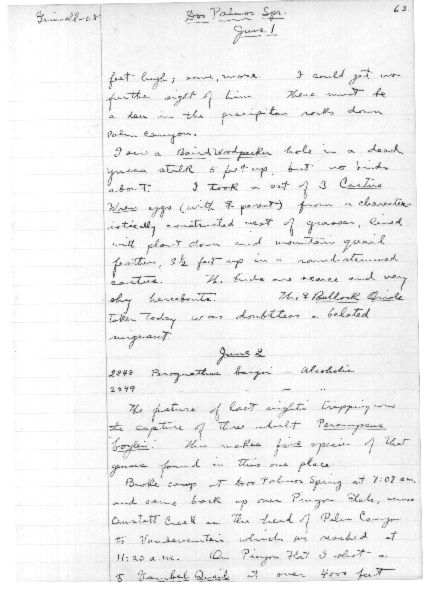 Grinnell-08
Dos Palmos Spr.
63
June 1
feet high; some, more. I could get no
further sight of him. There must be
a den in the precipitous rocks down
Palm Canyon.
I saw a Baird Woodpecker hole in a dead
yucca stalk 5 feet up, but no birds
about. I took a set of 3 Cactus
Wren eggs (with ♀ parent) from a character-
istically constructed nest of grasses, lined
with plant down and mountain quail
feathers, 3½ feet up in a round-stemmed
cactus. The birds are scarce and very
shy hereabouts. The ♀ Bullock Oriole
taken today was doubtless a belated
migrant.
June 2
2248 Perognathus - Alcoholic
2249 " - "
The feature of last night's trapping was
the capture of three adult Peromyscus
boylei. This makes five species of that
genus found in this one place.
Broke camp at Dos Palmos Spring at 7:07 a.m.
and came back up over Pinyon Flats, across
Omstott Creek in the head of Palm Canyon
to Vandeventer's which we reached at
11:20 a.m. On Pinyon Flat I shot a
♀ Gambel Quail at over 4000 feet